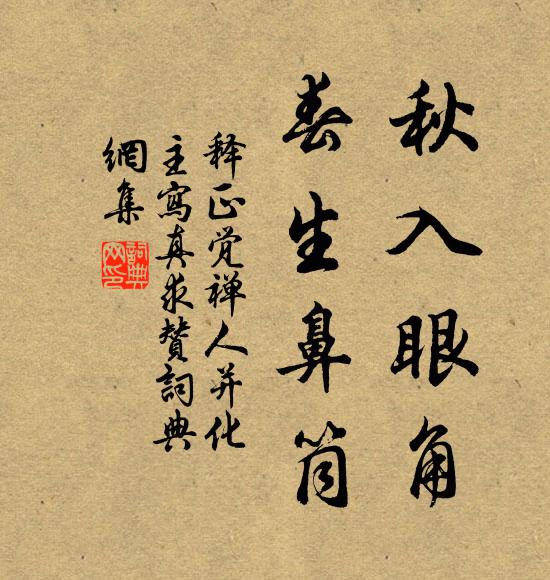 秋入眼角
春生鼻筒
释正觉禅人并化
主寫真求賛詞典
網集
詞典網印